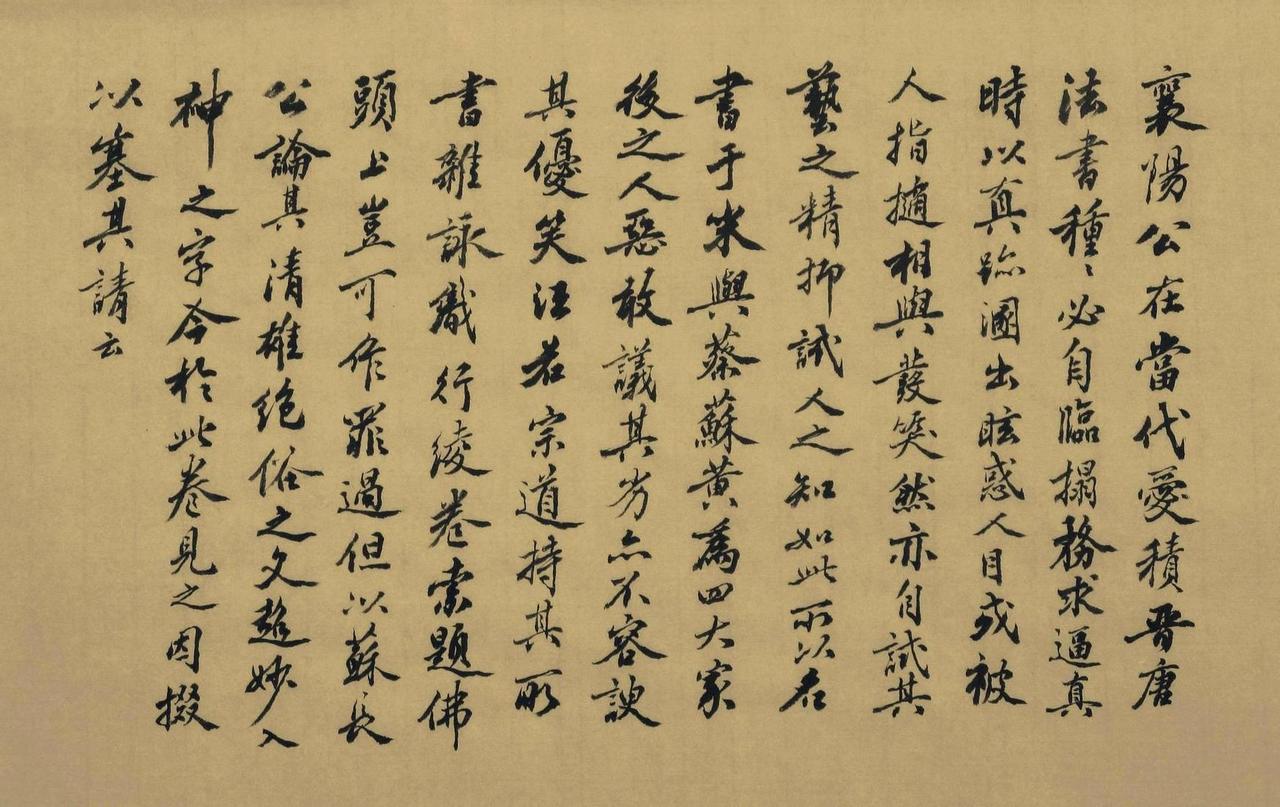 襄陽公在當代愛積晉唐
法書種〻必自臨搨務求逼真
時以真跡溷出眩惑人目或被
人指擿相與發笑然亦自試其
藝之精抑試人之知如此所以名
書于宋與蔡蘇黃為四大家
後之人惡敢議其劣亦不容諛
其優笑汪君宗道持其所
書雜詠織行綾卷索題佛
頭上豈可作罪過但以蘇長
公論其清雄絶俗之文超妙入
神之字今於此卷見之因掇
以塞其請云